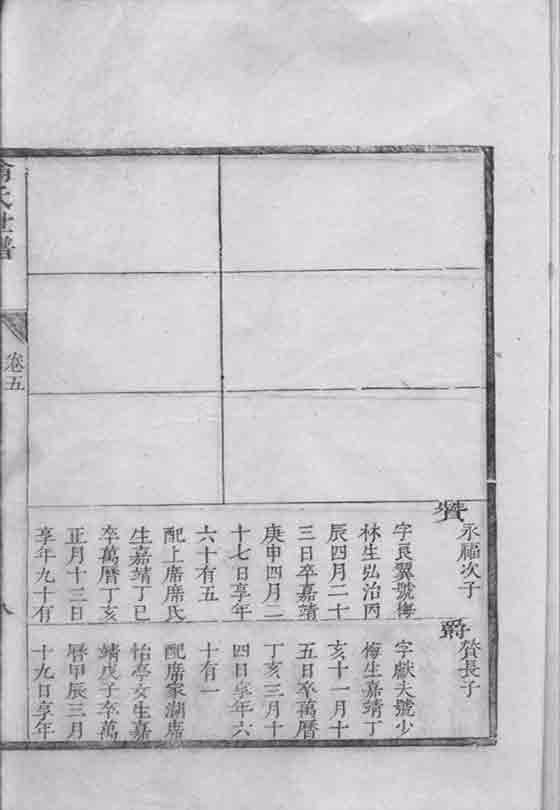 永福次子
賛
字良翼號梅
林生弘治丙
辰四月二十
三日卒嘉靖
庚申四月二
十七日享年
六十有五
配上席席氏
生嘉靖丁巳
卒萬曆丁亥
正月十三日
享年九十有
賛長子
爵
字獻夫號少
梅生嘉靖丁
亥十一月十
五日卒萬曆
丁亥三月十
四日享年六
十有一
配席家湖席
怡亭女生嘉
靖戊子卒萬
曆甲辰三月
十九日享年
氏世譜
卷五
八